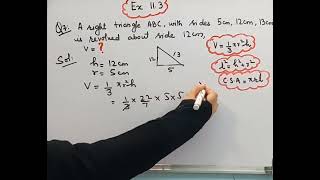 Ex 11.3
Q7: A right triangle ABC, with sides 5cm, 12cm, 13cm
is revolved about side 12cm,
V = ?
Sol:
h = 12cm
r = 5cm
12
13
5
V = 1/3 πr²h
l² = h² + r²
C.S.A = πrl
V = 1/3 πr²h
= 1/3 × 22/7 × 5 × 5